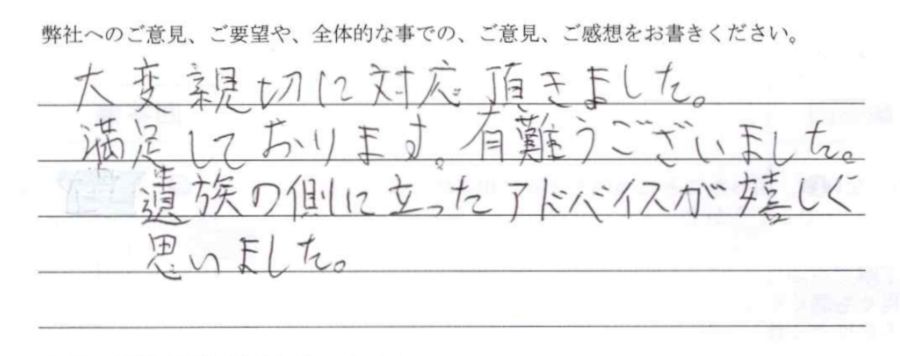 弊社へのご意見、ご要望や、全体的な事での、ご意見、ご感想をお書きください。
大変親切に対応頂きました。
満足しております。有難うございました。
遺族の側に立ったアドバイスが嬉しく
思いました。